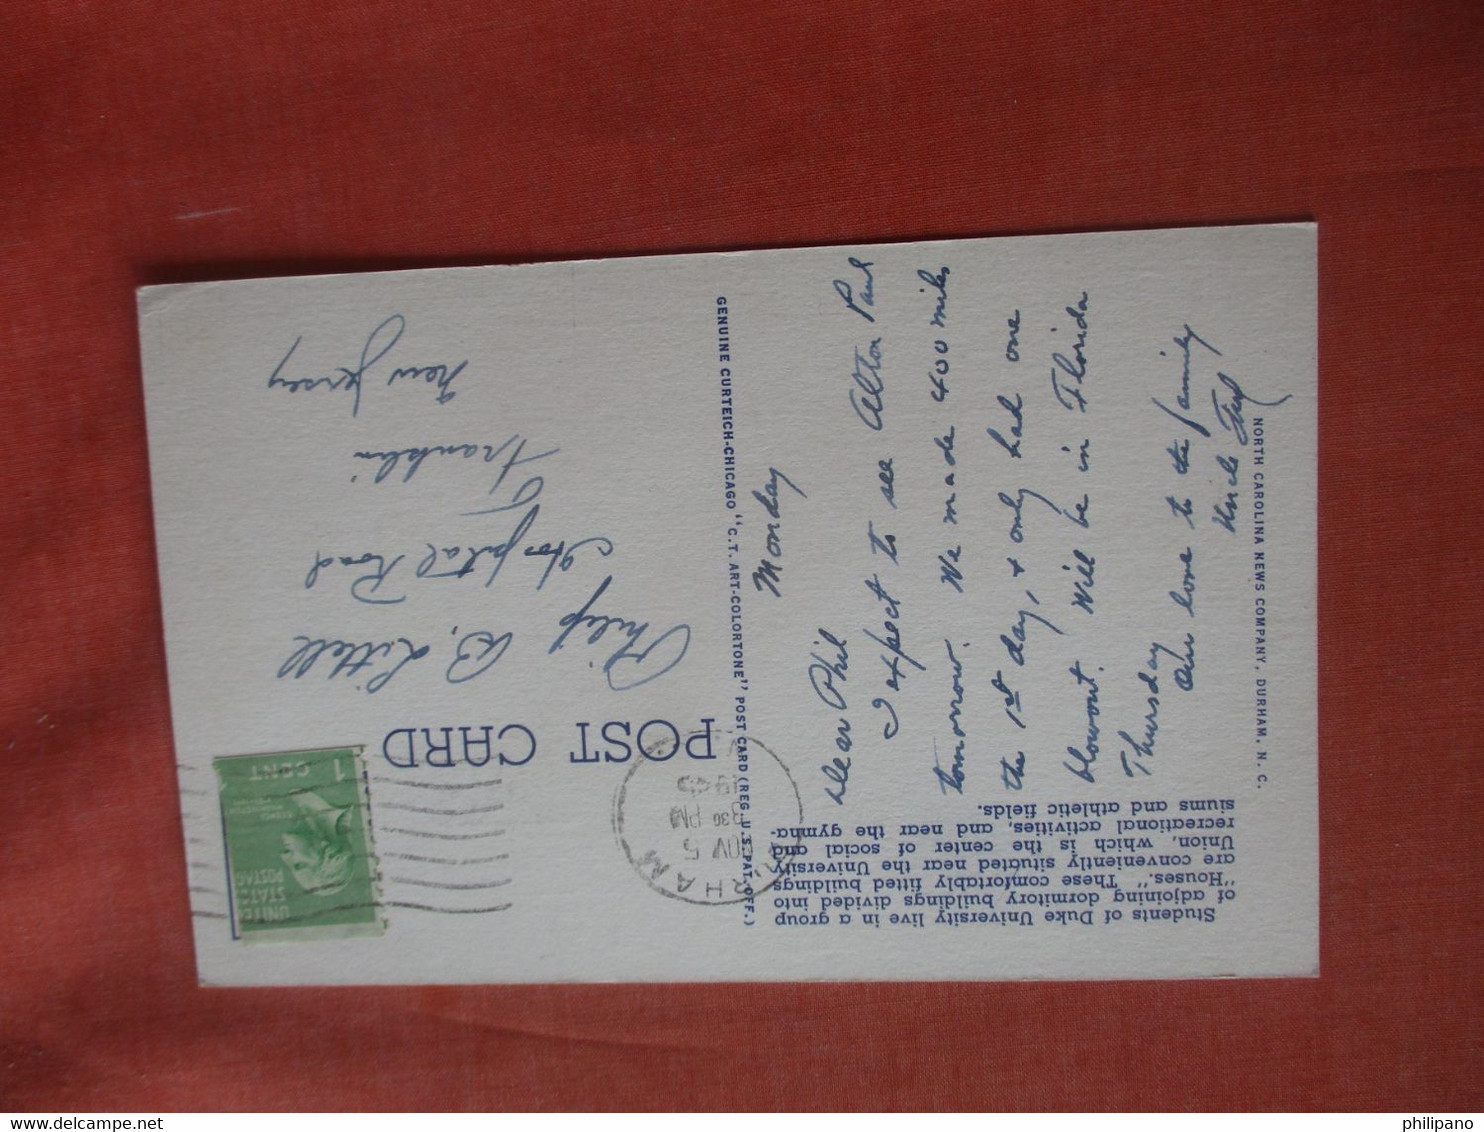 Students of Duke University live in a group
of adjoining dormitory buildings divided into
"Houses." These comfortably fitted buildings
are conveniently situated near the University
Union, which is the center of social and
recreational activities, and near the gymna-
siums and athletic fields.
POST CARD
UNITED
STATES
POSTAGE
1 CENT
DURHAM
NOV 5
3 30 PM
1945
Philip B. Littell
Hospital Road
Franklin
New Jersey
GENUINE CURTEICH-CHICAGO "C.T. ART-COLORTONE" POST CARD (REG. U.S. PAT. OFF.)
Monday
Dear Phil
I expect to see Alton Paul
tomorrow. We made 400 miles
the 1st day, + only had one
blowout. Will be in Florida
Thursday
Our love to the family
Uncle
NORTH CAROLINA NEWS COMPANY, DURHAM, N. C.
philipano